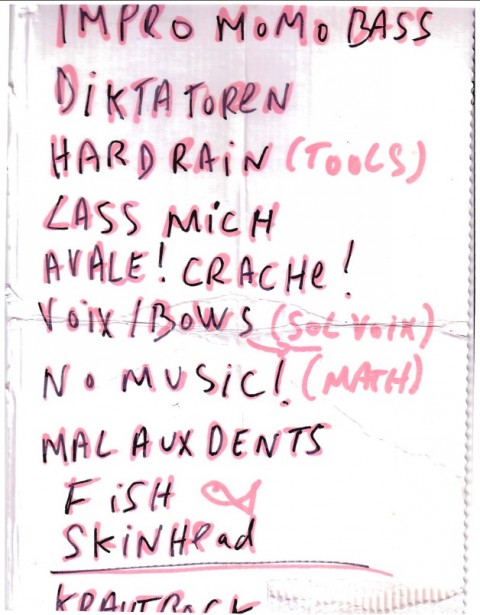 IMPRO MoMo BASS
DiKTAToReN
HARD RAiN (TOOLS)
LASS MiCH
AVALE! CRACHe!
VOiX/BOWS (SOL VOiX)
No MUSiC! (MATH)
MAL AUX DENTS
FiSH
SKiNHead
KRAUTROCK